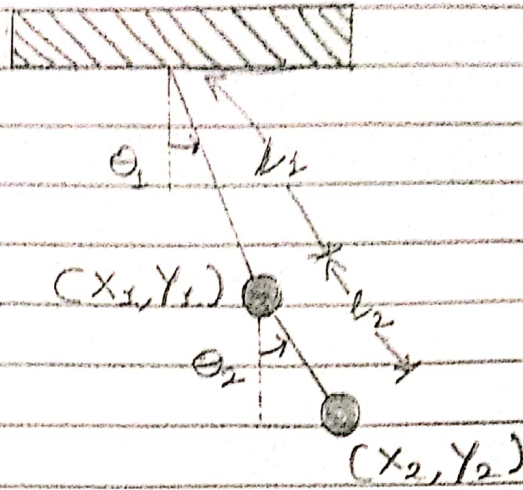 θ₁
l₁
(x₁, y₁)
l₂
θ₂
(x₂, y₂)